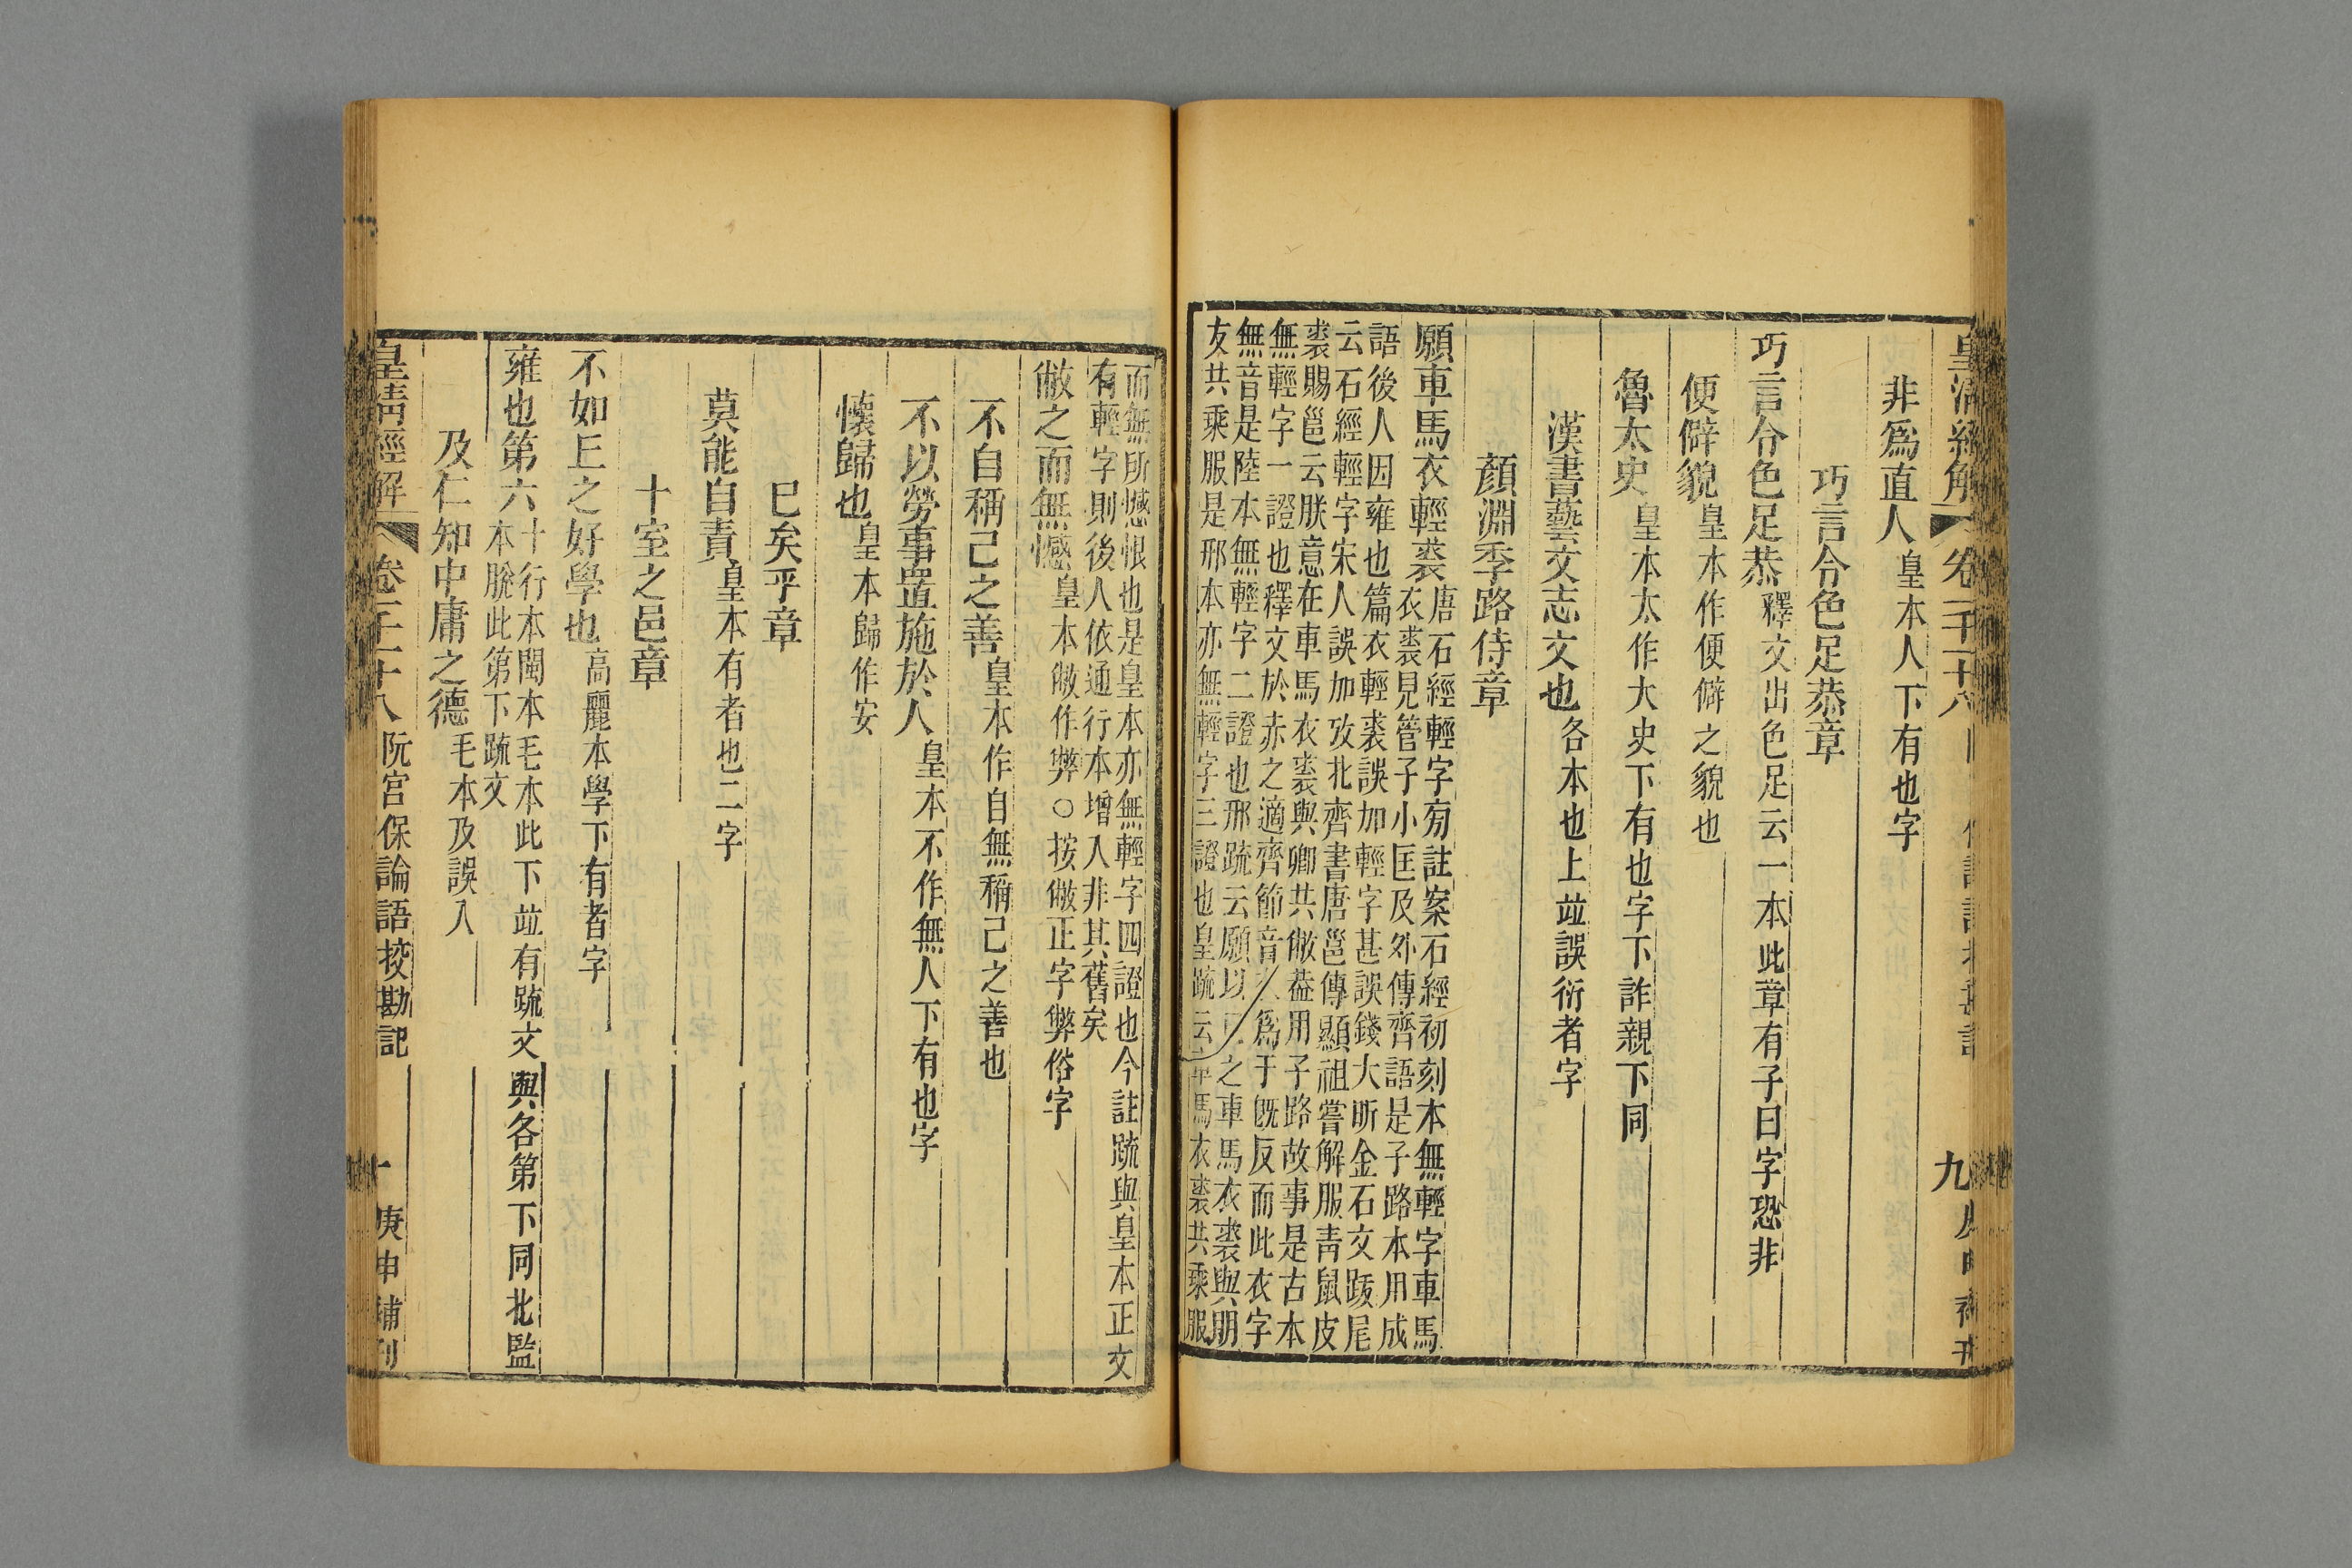 皇清經解 卷一千一十八 九
非爲直人皇本人下有也字
巧言令色足恭章
巧言令色足恭釋文出色足云一本此章有子曰字恐非
便僻貌皇本作便僻之貌也
魯太史皇本太作大史下有也字下詐親下同
漢書藝文志文也各本也上並誤衍者字
顏淵季路侍章
願車馬衣輕裘唐石經輕字㫄註案石經初刻本無輕字車馬
衣裘見管子小匡及外傳齊語是子路本用成
語後人因雍也篇衣輕裘誤加輕字甚誤錢大昕金石文跋尾
云石經輕字宋人誤加攷北齊書唐邕傳顯祖嘗解服青鼠皮
裘賜邕云朕意在車馬衣裘與卿共敝葢用子路故事是古本
無輕字一證也釋文於赤之適齊節音衣爲于旣反而此衣字
無音是陸本無輕字二證也邢疏云願以己之車馬衣裘與朋
友共乘服是邢本亦無輕字三證也皇疏云車馬衣裘共乘服
而無所憾恨也是皇本亦無輕字四證也今註疏與皇本正文
有輕字則後人依通行本增入非其舊矣
敝之而無憾皇本敝作弊○按敝正字弊俗字
不自稱己之善皇本作自無稱己之善也
不以勞事置施於人皇本不作無人下有也字
懷歸也皇本歸作安
已矣乎章
莫能自責皇本有者也二字
十室之邑章
不如丘之好學也高麗本學下有者字
雍也第六十行本閩本毛本此下並有疏文與各第下同北監
本脫此第下疏文
及仁知中庸之德毛本及誤入
皇清經解 卷一千一十八 阮宮保論語挍勘記 十 庚申補刊